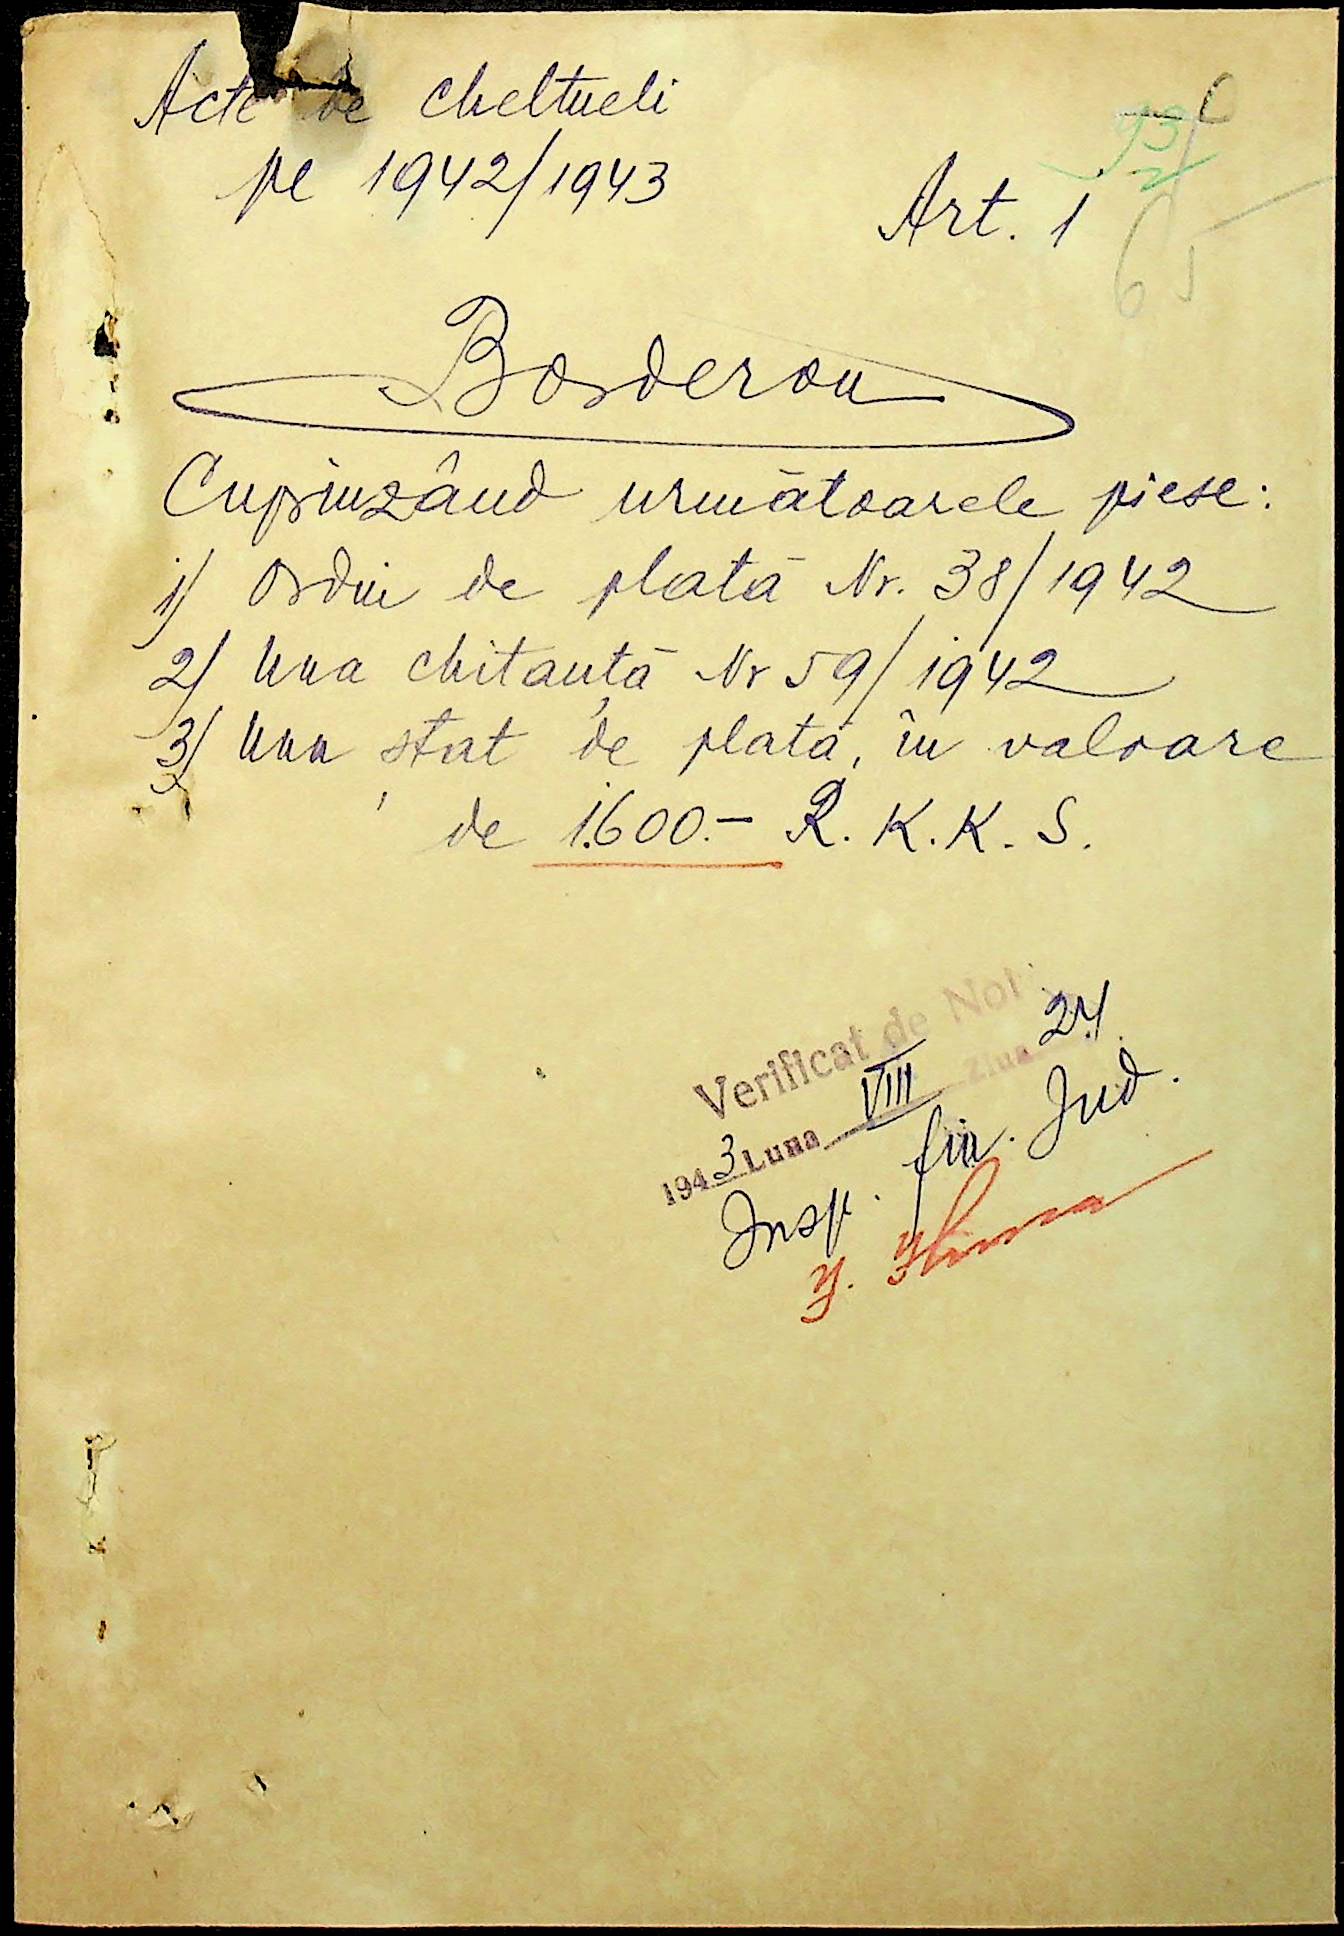 Acte de cheltueli
pe 1942/1943
Art. 1
65
Borderou
Cuprinzând următoarele piese:
1/ Ordin de plată Nr. 38/1942
2/ Una chitanță Nr 59/1942
3/ Unu stat de plată, în valoare
de 1.600.- R. K. K. S.
Verificat de Noi
1943 Luna VIII Ziua 24
Insp. fin. Jud.